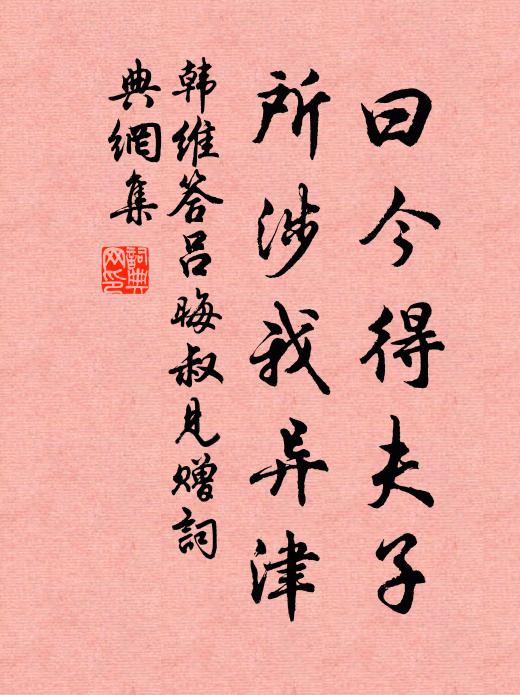 曰今得夫子
所涉我异津
韩维答吕晦叔见赠词
典網集
詞典網印